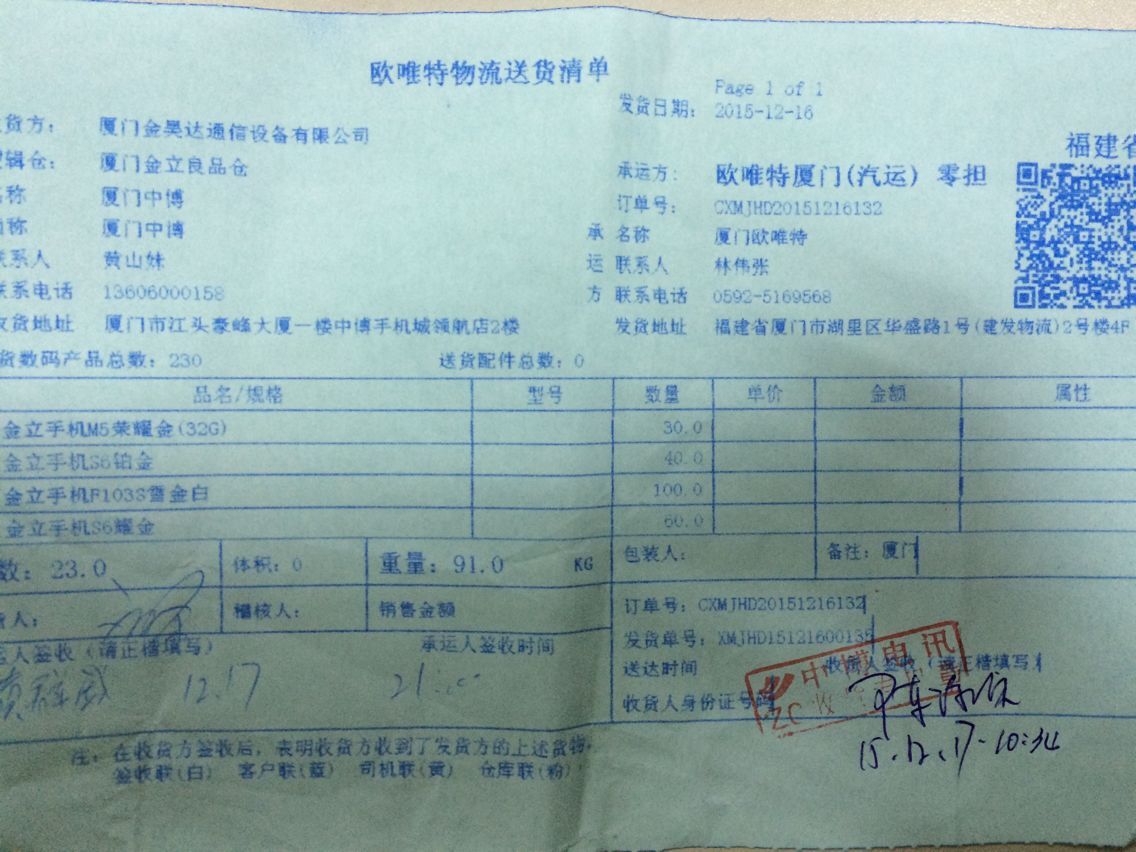 欧唯特物流送货清单
Page 1 of 1
发货日期： 2015-12-16
货方： 厦门金昊达通信设备有限公司
福建省
辑仓： 厦门金立良品仓
承运方： 欧唯特厦门(汽运) 零担
称 厦门中博
订单号： CXMJHD20151216132
称 厦门中博
承 名称 厦门欧唯特
联系人 黄山妹
运 联系人 林伟张
联系电话 13606000158
方 联系电话 0592-5169568
收货地址 厦门市江头豪峰大厦一楼中博手机城领航店2楼
发货地址 福建省厦门市湖里区华盛路1号(建发物流)2号楼4F
货数码产品总数： 230 送货配件总数： 0
品名/规格 型号 数量 单价 金额 属性
金立手机M5荣耀金(32G) 30.0
金立手机S6铂金 40.0
金立手机F103S香金白 100.0
金立手机S6耀金 60.0
数： 23.0 体积： 0 重量： 91.0 KG 包装人： 备注： 厦门
货人： 稽核人： 销售金额
订单号： CXMJHD20151216132
发货单号： XMJHD15121600135
运人签收 (请正楷填写) 承运人签收时间
送达时间 收货人签收 (请正楷填写)
12.17 21:00
收货人身份证号码
中博电讯
15.12.17-10:34
注： 在收货方签收后，表明收货方收到了发货方的上述货物，
签收联(白) 客户联(蓝) 司机联(黄) 仓库联(粉)